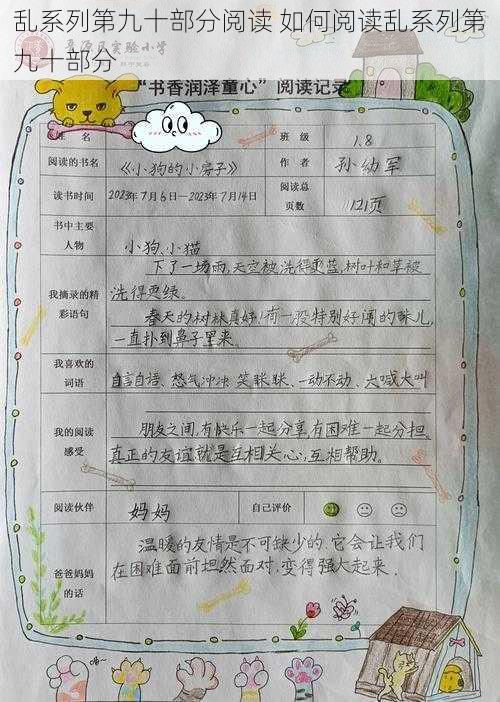 乱系列第九十部分阅读 如何阅读乱系列第
九十部分
实验小学
“书香润泽童心”阅读记录
姓 名
班 级
1.8
阅读的书名
《小狗的小房子》
作 者
孙幼军
读书时间
2023年7月6日—2023年7月14日
阅读总
页数
121页
书中主要
人物
小狗、小猫
我摘录的精
彩语句
下了一场雨,天空被洗得更蓝,树叶和草被
洗得更绿。
春天的树林真好!有一股特别好闻的味儿,
一直扑到鼻子里来。
我喜欢的
词语
自言自语、怒气冲冲、笑眯眯、一动不动、大喊大叫
我的阅读
感受
朋友之间,有快乐一起分享,有困难一起分担。
真正的友谊就是互相关心,互相帮助。
阅读伙伴
妈妈
自己评价
爸爸妈妈
的话
温暖的友情是不可缺少的.它会让我们
在困难面前坦然面对,变得强大起来.